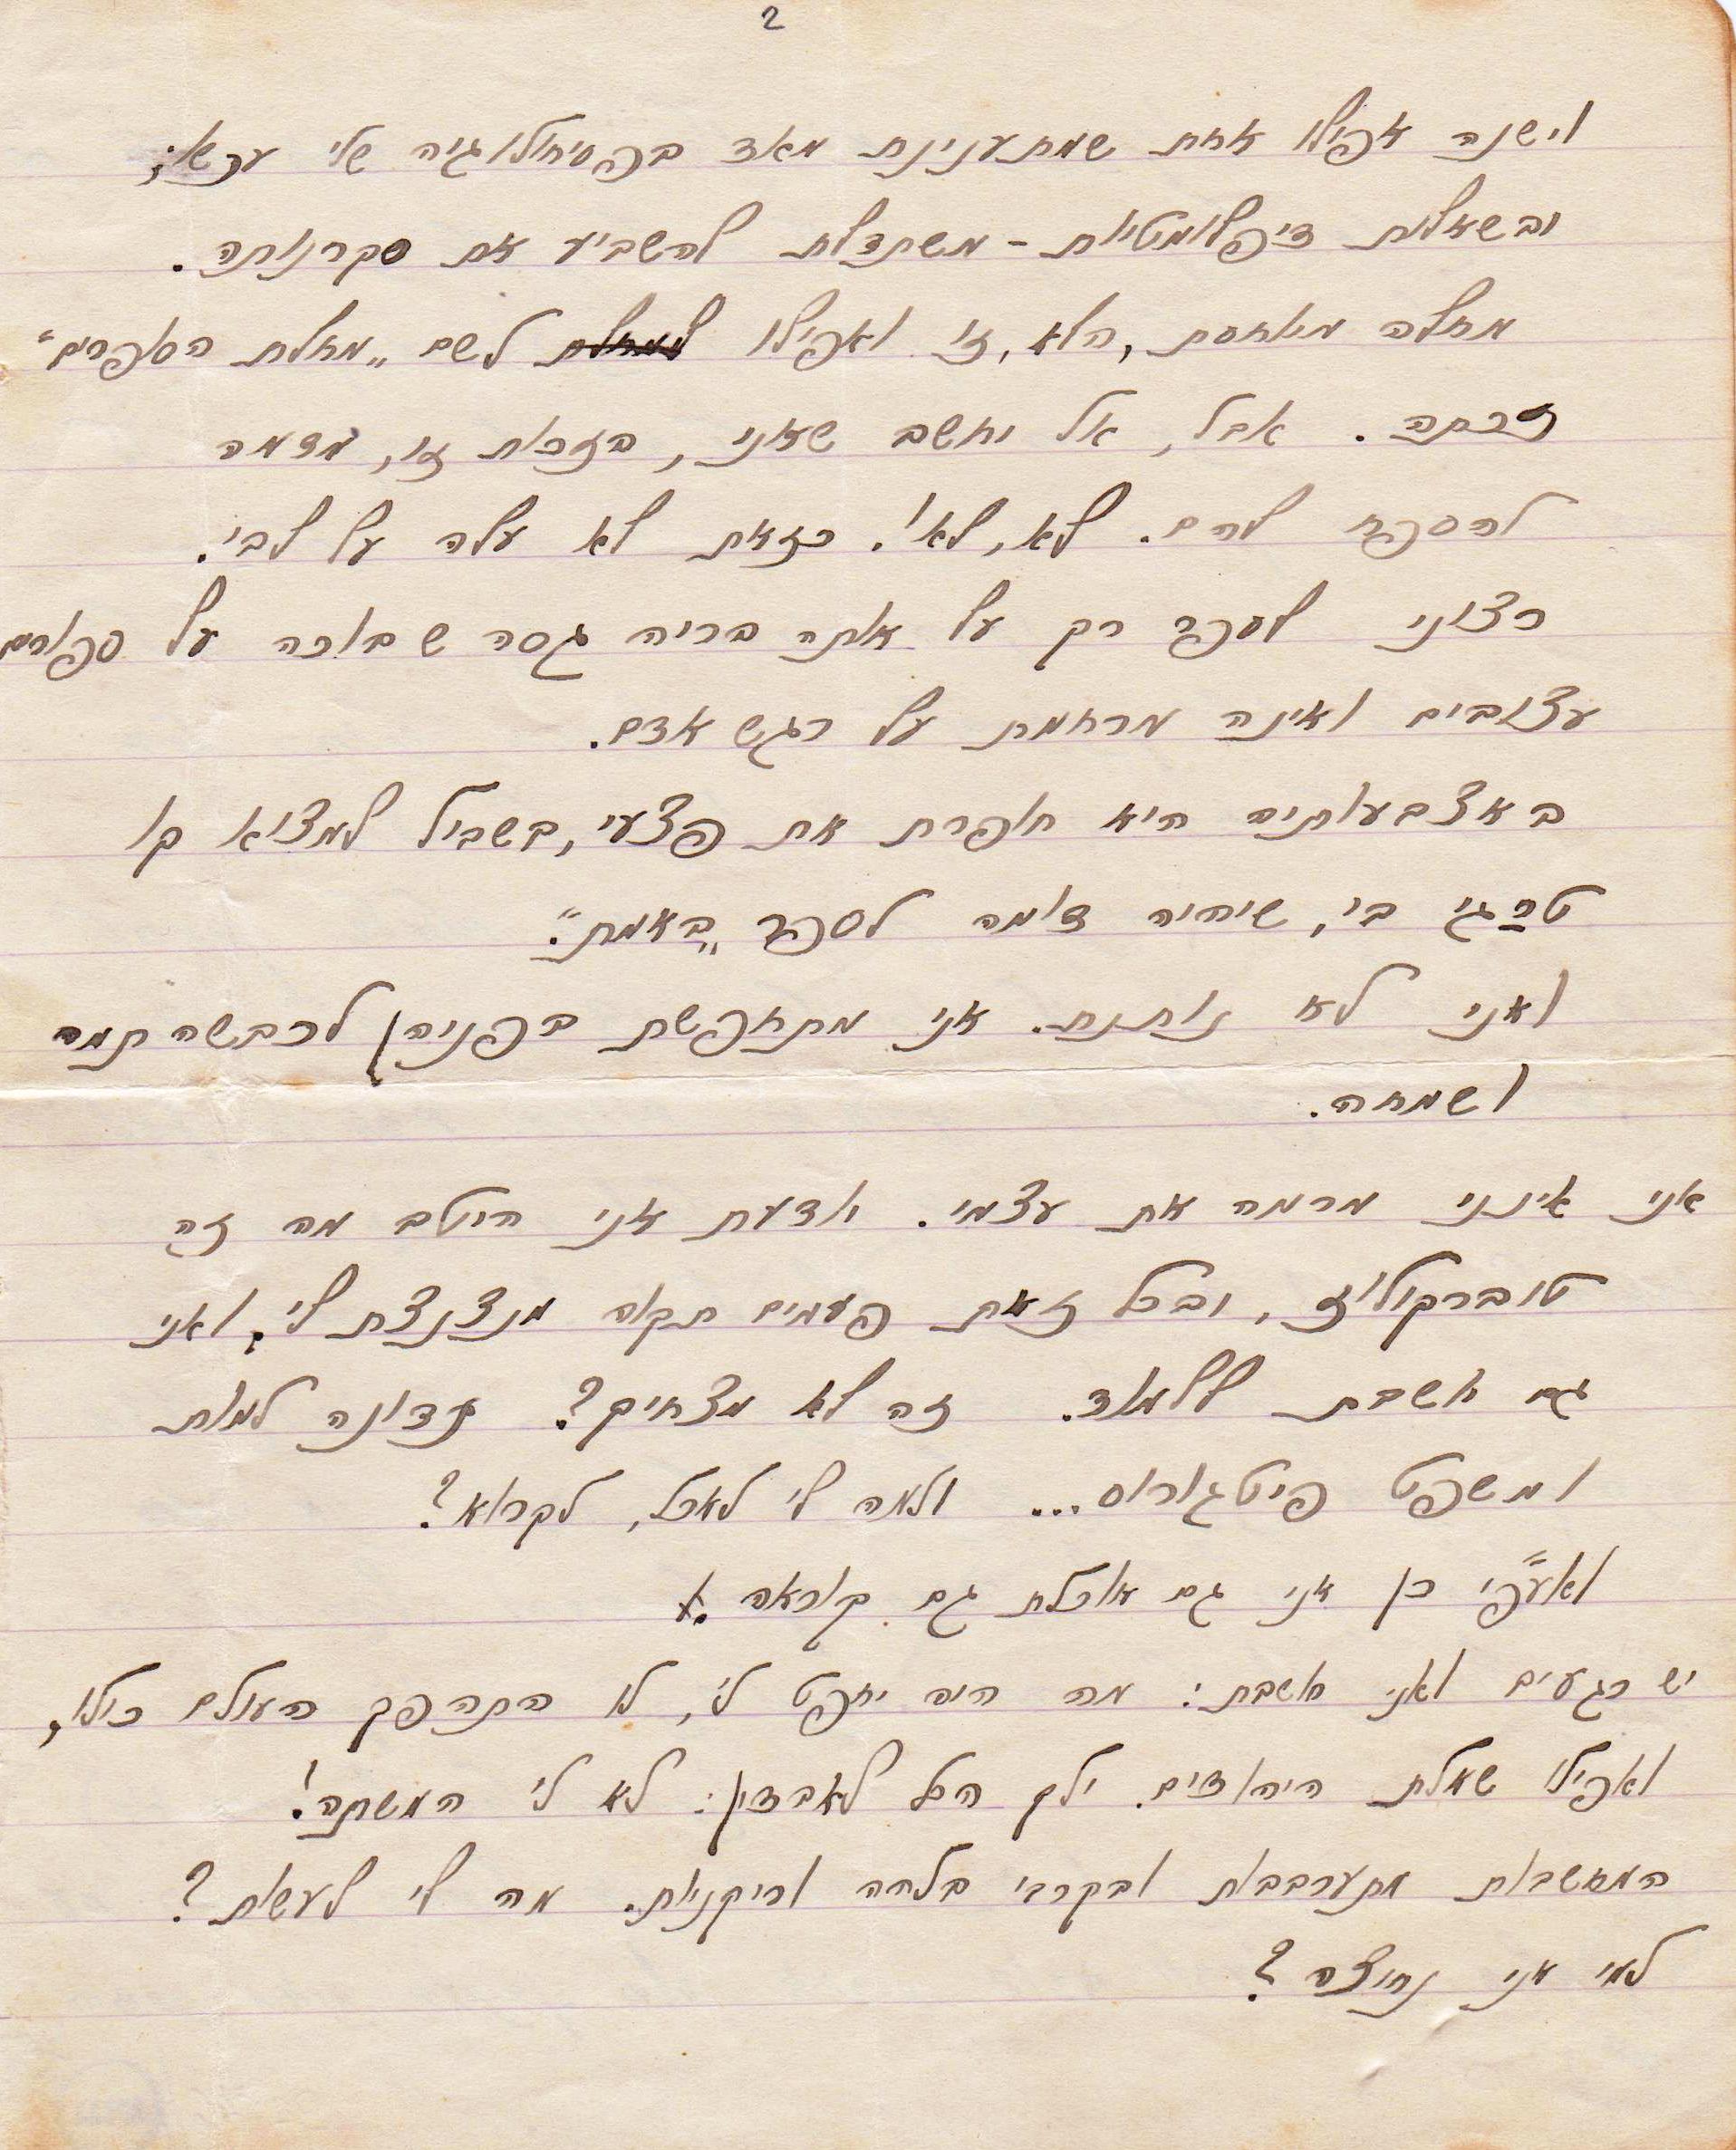 2
וישנה אפילו אחת שמתענינת מאד בפסיחולוגיה שלי עכשו;
ובשאלות דיפלומטיות - משתדלת להשביע את סקרנותה.
מחלה מיוחסת, הלא, זו ואפילו למחלת לשם „מחלת הסופרים"
זכתה. אבל, אל יחשב שאני, בזכות זו, מדמה
להספד להם. לא, לא! כזאת לא עלה על לבי.
רצוני לספר רק על אותה בריה גסה שבוכה על ספורים
עצובים ואינה מרחמת על רגש אדם.
באצבעותיה היא חופרת את פצעי, בשביל למצוא קו
טרגי בי, שיהיה דומה לספר „באמת".
ואני לא נותנת. אני מתחפשת בפניה לכבשה תמה
ושמחה.
אני אינני מרמה את עצמי. יודעת אני היטב מה זה
טוברקולוז, ובכל זאת פעמים תקוה מנצנצת לי, ואני
גם חושבת ללמוד. זה לא מצחיק? נדונה למות
ומשפט פיטגורוס... ולמה לי לאכל, לקרוא?
ואעפ"י כן אני גם אוכלת גם קוראה.
יש רגעים ואני חושבת: מה היה יחפט לי, לו התהפך העולם כולו,
ואפילו שאלת היהודים. ילך הכל לאבדון: לא לי המשתה!
המחשבות מתערבבות ובקרבי בלחה וריקניות. מה לי לעשות?
למי אני נחוצה?